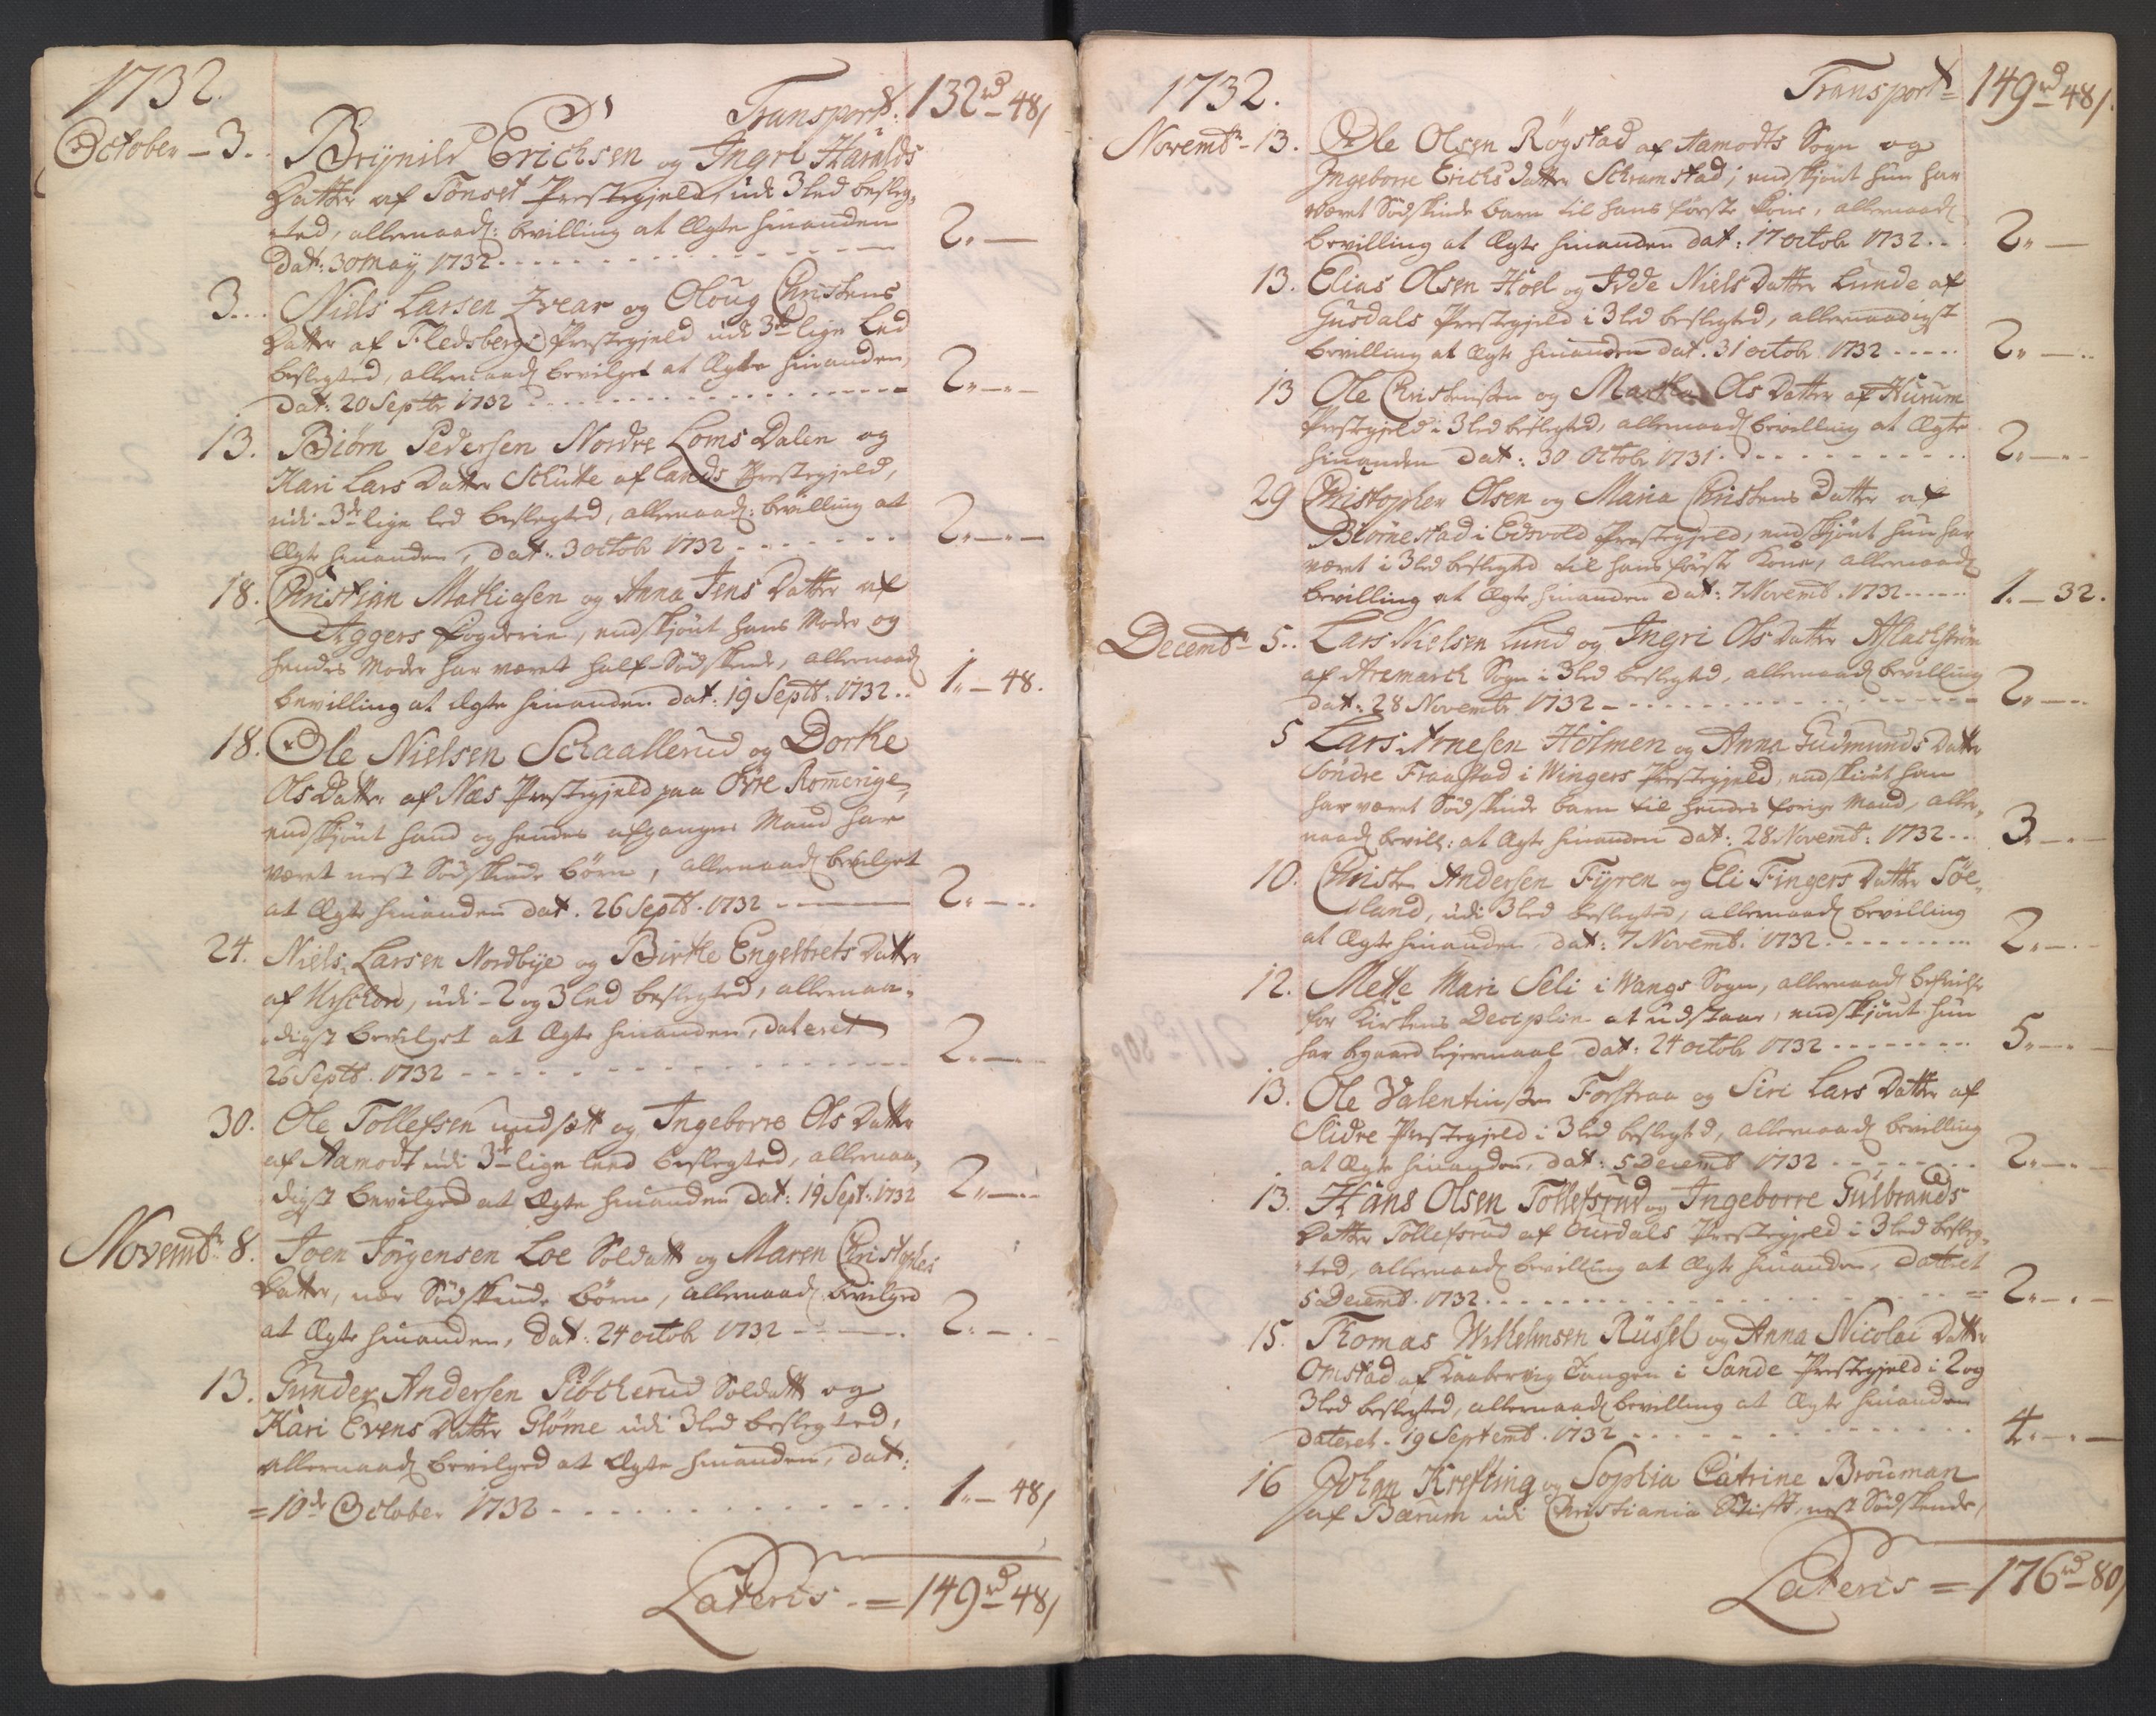 1732.
Transport: 132 rd - 48 ,
October - 3. Brÿnild Erichsen og Ingri Haralds
Datter af Tönset Prestegjeld, udi 3 led besleg-
ted, allernaad: bevilling at Ægte hinanden
Dat: 30 Maÿ 1732 - - - 2„ —
3. Niels Larsen og Oloug Christens
Datter af Fledsberg Prestegjeld udi 3de lige Led
beslegted, allernaad bevilget at Ægte hinanden,
Dat: 20 Septbr 1732 - - - 2„ — „ —
13. Biörn Pedersen Nordre Loms Dalen og
Kari Lars Datter Schutte af Lands Prestegjeld,
udi 3de lige led beslegted, allernaad: bevilling at
Ægte hinanden, Dat: 3 octobr 1732 - - - 2„ — „ —
18. Christian Mathiasen og Anna Jens Datter af
Aggers fogderie, endskjönt hans Moder og
hendes Moder har været half-Södskende, allernaad
bevilling at Ægte hinanden dat: 19 Septb: 1732 .. 1„ — 48.
18. Ole Nielsen Schaallerud og Dorthe
Ols Datter af Næs Prestegjeld paa Övre Romerige,
endskjönt hand og hendes afgangne Mand har
været nest Södskinde börn, allernaad bevilget
at Ægte hinanden dat. 26 Septb. 1732 — 2„ — „ -
24. Niels Larsen Nordbÿe og Birthe Engelbrets Datter
af Urschou, udi 2 og 3 led beslegted, allernaa-
digst bevilget at Ægte hinanden, dateret
26 Septb. 1732 - - - 2„ — „ -
30. Ole Tollefsen og Ingeborre Ols Datter
af Aamodt udi 3de lige leed beslegted, allernaa-
digst bevilged at Ægte hinanden Dat: 19 Sept: 1732 2„ — „ -
Novembr 8. Joen Jörgensen Loe Soldatt og Maren Christophers
Datter, nær Södskinde börn, allernaad: bevilged
at Ægte hinanden, Dat: 24 octobr 1732 - - - 2„ — „ -
13. Gunder Andersen Piöckerud Soldatt og
Kari Evens Datter Glöme udi 3 led beslegted,
allernaad bevilged at Ægte hinanden, dat:
= 10de October 1732 - - - 1„ — 48 ,
Lateris - = 149 rd - 48 ,
1732.
Transport = 149 rd - 48 ,
Novembr - 13. Ole Olsen Rögstad af Aamodts Sogn og
Ingeborre Erichs Datter Schramstad, endskjönt hun har
været Södskinde barn til hans förste kone, allernaad
bevilling at Ægte hinanden dat: 17 octobr 1732 .. 2„ —
13. Elias Olsen Höel og Idde Niels Datter Lunde af
Gusdals Prestegjeld i 3 led beslegted, allernaadigst
bevilling at Ægte hinanden dat. 31 octobr 1732 - - - 2„ — „ -
13 Ole Christensen og Martha Ols Datter af Hurum
Prestegjeld i 3 led beslegted, allernaad bevilling at Ægte
hinanden Dat: 30 Octobr 1731 - - - 2„ — „ -
29 Christopher Olsen og Maria Christens Datter af
Biörnestad i Edsvold Prestegjeld, endskjönt hun har
været i 3 led beslegted til hans förste Kone, allernaad
bevilling at Ægte hinanden Dat: 7 Novemb. 1732 - - - 1„ — 32.
Decembr 5.. Lars Nielsen Lund og Ingri Ols Datter Aslachström
af Aremarch Sogn i 3 led beslegted, allernaad bevilling
dat: 28 Novembr 1732 - - - 2„ — „ -
5 Lars Arnesen Holmen og Anna Gudmunds Datter
Söndre Fraastad i Wingers Prestegjeld, endskiönt han
har været Södskinde barn til hendes forige Mand, aller-
naad bevill: at Ægte hinanden dat: 28 Novemb: 1732 .. 3„ — „ —
10. Christen Andersen Fÿren og Eli Fingers Datter Söe-
land, udi 3 led beslegted, allernaad bevilling
at Ægte hinanden Dat: 7 Novemb. 1732 - - - 2„ — „ -
12. Mette Mari Seli i Wangs Sogn, allernaad befrielse
for Kirkens Deciplin at udstaae, endskjönt hun
har begaaed lejermaal dat: 24 octobr 1732 - - - 5„ — „ —
13. Ole Valentinsen Forstraa og Siri Lars Datter af
Slidre Prestegjeld i 3 led beslegted, allernaad bevilling
at Ægte hinanden, dat: 5 Decemb 1732 - - - 2„ — „ —
13. Hans Olsen Tollefsrud og Ingeborre Gulbrands
Datter Tollefsrud af Ourdals Prestegjeld i 3 led besleg-
ted, allernaad bevilling at Ægte hinanden, datteret
5 Decemb. 1732 - - - 2„ — „ —
15. Thomas Wilhelmsen Rüssel og Anna Nicolai Datter
Omstad af Kaaberwig Tangen i Sande Prestegjeld i 2 og
3 led beslegted, allernaad bevilling at Ægte hinanden
dateret. 19 Septemb. 1732 - - - 4„ — „ —
16 Johan Krefting og Sophia Catrine Brouman
af Bærum udi Christiania Stift, nest Södskende,
Lateris = 176 rd - 80 ,